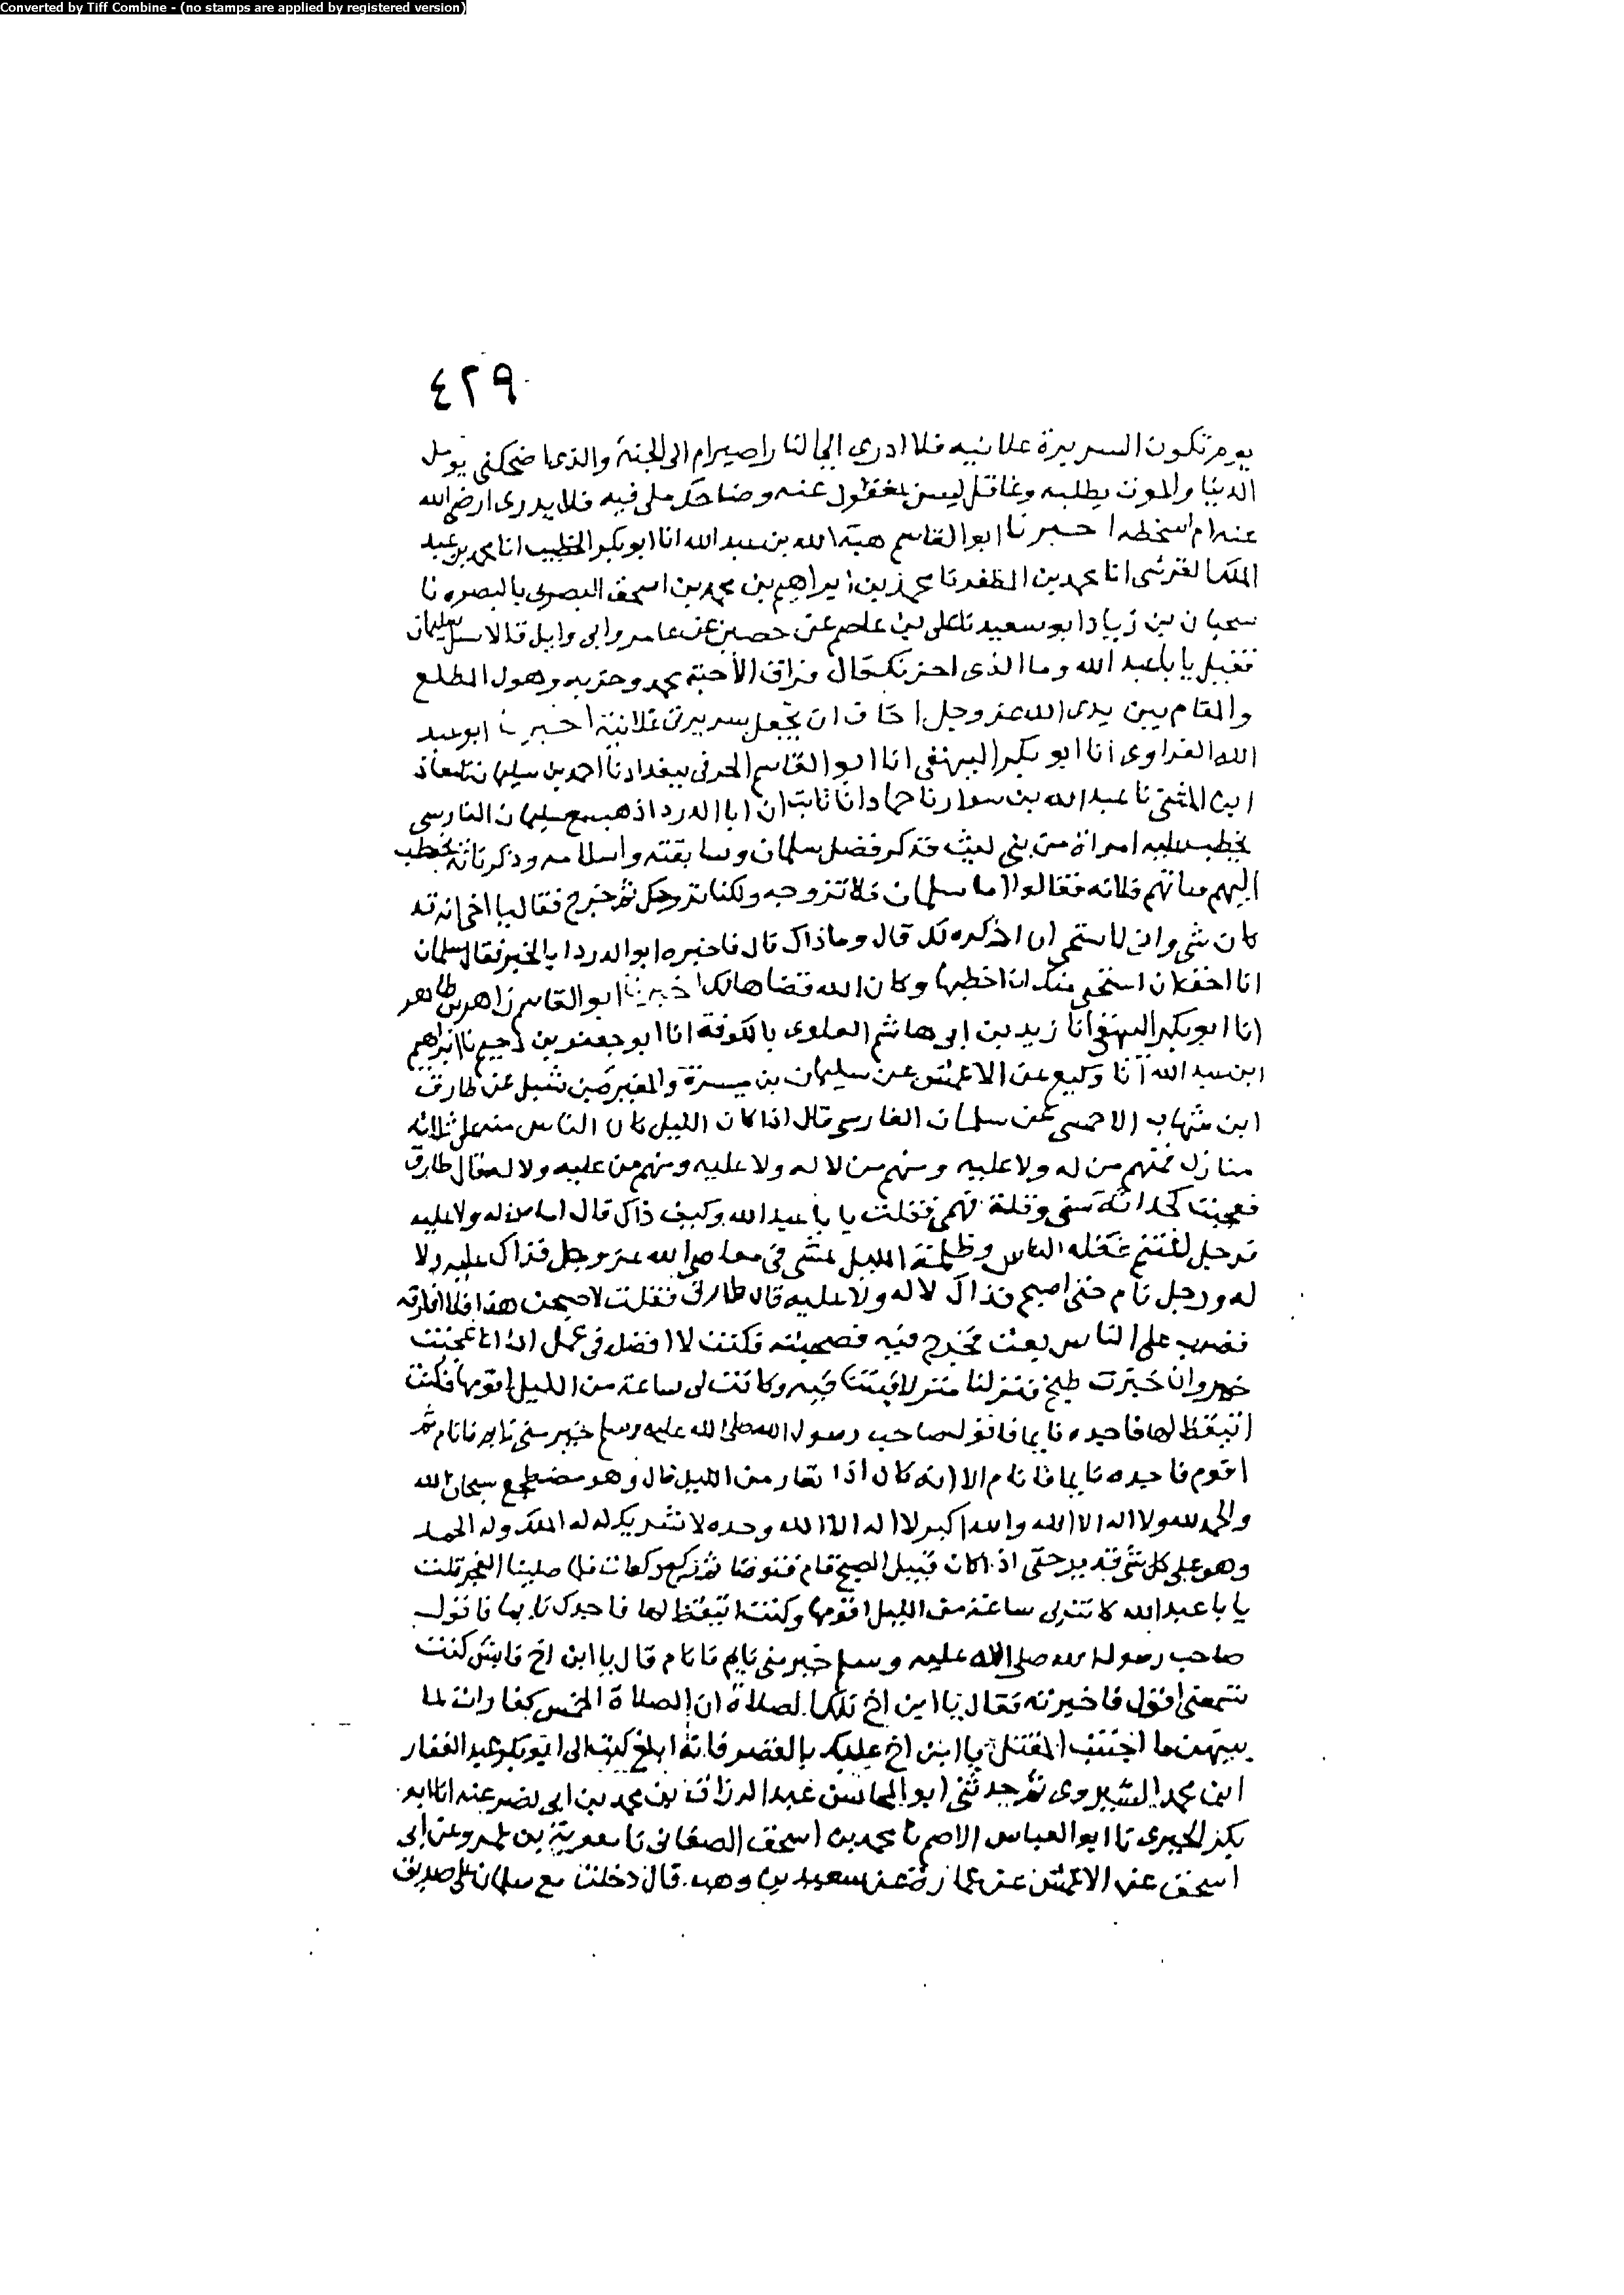 Converted by Tiff Combine - (no stamps are applied by registered version)
٤٢٩
يوم تكون السريرة علانيه فلا ادرى الى النار اصير ام الى الجنة والذى اضحكنى يومل
الدنيا والموت يطلبه وغافل ليس بمغفول عنه وضاحك ملى فيه فلا يدرى ارضى الله
عنه ام اسخطه اخبرنا ابو القاسم هبة الله بن عبد الله انا ابو بكر الخطيب انا محمد بن عبيد
الملك القرشى انا محمد بن المظفر نا محمد بن ابراهيم بن محمد بن اسحق البصرى بالبصره نا
سحبان بن زياد ابو سعيد نا على بن عاصم عن حصين عن عامر وابى وايل قالا سل سليمان
فقيل يا با عبد الله وما الذى احزنك قال فراق الأحبة محمد وحزبه وهول المطلع
والمقام بين يدى الله عز وجل اخاف ان يجعل سريرتى علانية اخبرنا ابو عبد
الله الفراوى انا ابو بكر البيهقى انا ابو القاسم الحرفى ببغداد نا احمد بن سليمان نا معاذ
ابن المثنى نا عبد الله بن سوار نا حماد انا ثابت ان ابا الدردا ذهب مع سليمان الفارسى
يخطب عليه امراة من بنى ليث فذكر فضل سلمان وسابقته واسلامه وذكر انه يخطب
اليهم فتاتهم فلانه فقالوا اما سلمان فلا نزوجه ولكنا نزوجك ثم خرج فقال يا اخى انه قد
كان شى وانى لاستحى ان اذكره لك قال وما ذاك قال فاخبره ابو الدردا بالخبر فقال سلمان
انا احق ان استحى منك ان اخطبها وكان الله قضاها لك اخبرنا ابو القاسم زاهر بن طاهر
انا ابو بكر البيهقى انا زيد بن ابى هاشم العلوى بالكوفة انا ابو جعفر بن دحيم نا ابراهيم
ابن عبد الله انا وكيع عن الاعمش عن سليمان بن ميسرة والمغيرة بن شبل عن طارق
ابن شهاب الاحمسى عن سلمان الفارسى قال اذا كان الليل كان الناس منه على ثلاثه
منازل فمنهم من له ولا عليه ومنهم من لا له ولا عليه ومنهم من عليه ولا له فقال طارق
فعجبت لحداثة سنى وقلة فهمى فقلت يا با عبد الله وكيف ذاك قال اما من له ولا عليه
فرجل اغتنم غفلة الناس وظلمة الليل فمشى فى معاصى الله عز وجل فذاك عليه ولا
له ورجل نام حتى اصبح فذاك لا له ولا عليه قال طارق فقلت لاصحبن هذا فلا افارقه
فضرب على الناس بعث فخرج فيه فصحبته فكنت لا افضله فى عمل ان انا عجنت
خبز وان خبزت طبخ فنزلنا منزلا فبتنا فيه وكانت لى ساعة من الليل اقومها فكنت
اتيقظ لها فاجده نايما فاقول صاحب رسول الله صلى الله عليه وسلم خير منى نايم فانام ثم
اقوم فاجده نايما فانام الا انه كان اذا تعار من الليل قال وهو مضطجع سبحان الله
والحمد لله ولا اله الا الله والله اكبر لا اله الا الله وحده لا شريك له له الملك وله الحمد
وهو على كل شى قدير حتى اذا كان قبيل الصبح قام فتوضا ثم ركع ركعات فلما صلينا الفجر قلت
يا با عبد الله كانت لى ساعة من الليل اقومها وكنت اتيقظ لها فاجدك نايما فاقول
صاحب رسول الله صلى الله عليه وسلم خير منى نايم فانام قال يا ابن اخ فايش كنت
تسمعنى اقول فاخبرته فقال يا ابن اخ تلك الصلاة ان الصلاة الخمس كفارات لما
بينهن ما اجتنب المقتل يا ابن اخ عليك بالقصد فانه ابلغ كتب الى ابو بكر عبد الغفار
ابن محمد الشيروى ثم حدثنى ابو المحاسن عبد الرزاق بن محمد بن ابى نصر عنه انا ابو
بكر الحيرى نا ابو العباس الاصم نا محمد بن اسحق الصغانى نا معوية بن عمرو عن ابى
اسحق عن الاعمش عن عمارة عن سعيد بن وهب قال دخلت مع سلمان على صديق